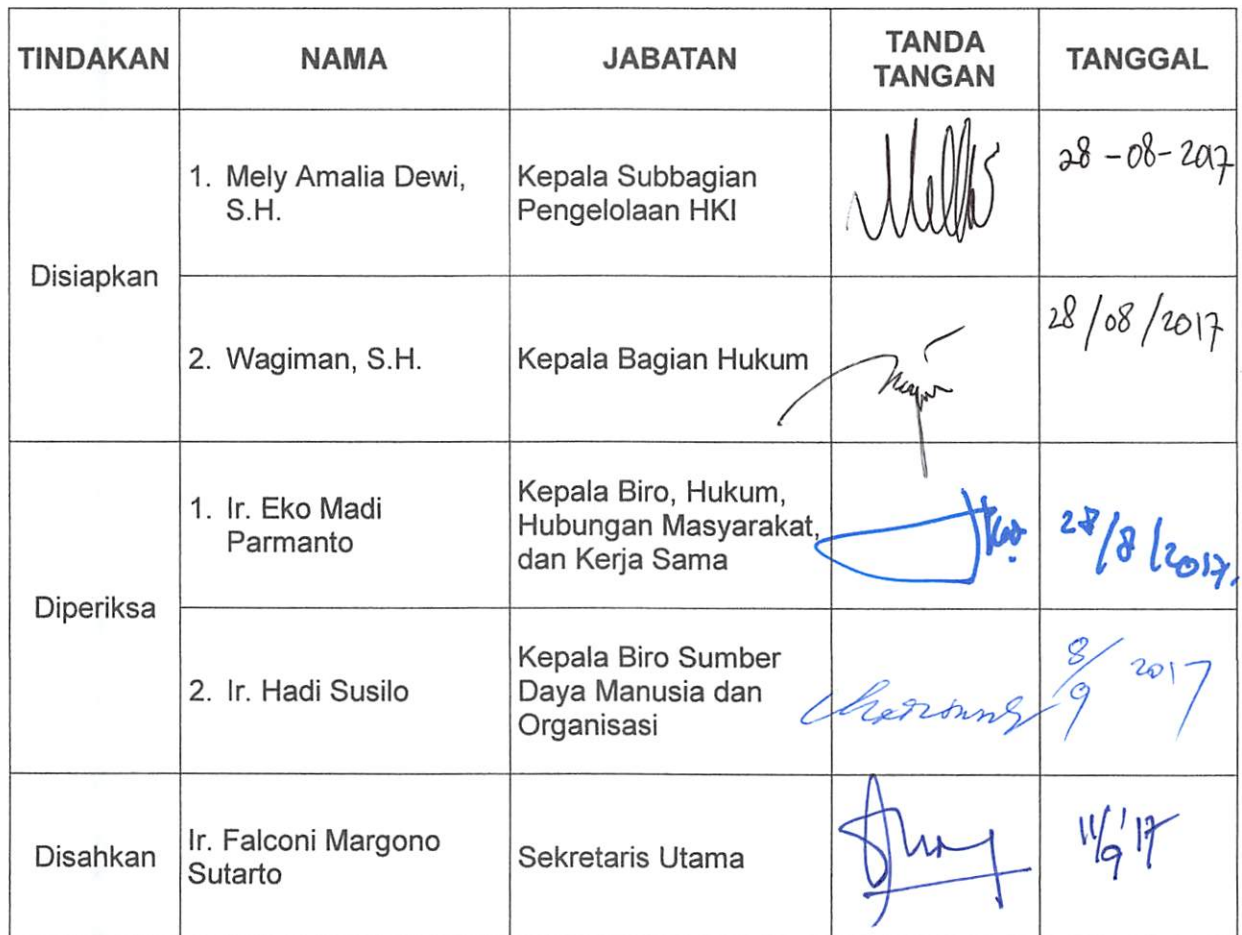 TINDAKAN NAMA JABATAN TANDA TANGAN TANGGAL
Disiapkan
1. Mely Amalia Dewi,
S.H.
Kepala Subbagian
Pengelolaan HKI
28-08-2017
2. Wagiman, S.H.
Kepala Bagian Hukum
28/08/2017
Diperiksa
1. Ir. Eko Madi
Parmanto
Kepala Biro, Hukum,
Hubungan Masyarakat,
dan Kerja Sama
28/8/2017.
2. Ir. Hadi Susilo
Kepala Biro Sumber
Daya Manusia dan
Organisasi
8/9 2017
Disahkan
Ir. Falconi Margono
Sutarto
Sekretaris Utama
11/9'17